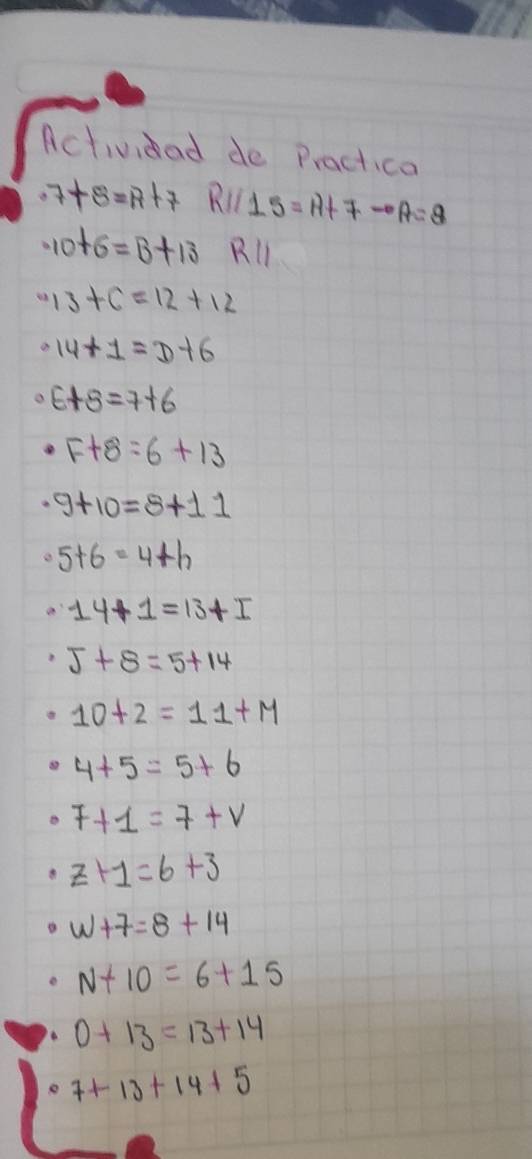 Actividad de Practica
·7+8=A+7 R//15=A+7→A=8
·10+6=B+13 R//
·13+C=12+12
·14+1=D+6
·E+8=7+6
·F+8=6+13
·9+10=8+11
·5+6=4+h
·14+1=13+I
·J+8=5+14
·10+2=11+M
·4+5=5+6
·7+1=7+V
·Z+1=6+3
·W+7=8+14
·N+10=6+15
·O+13=13+14
·7+13+14+5